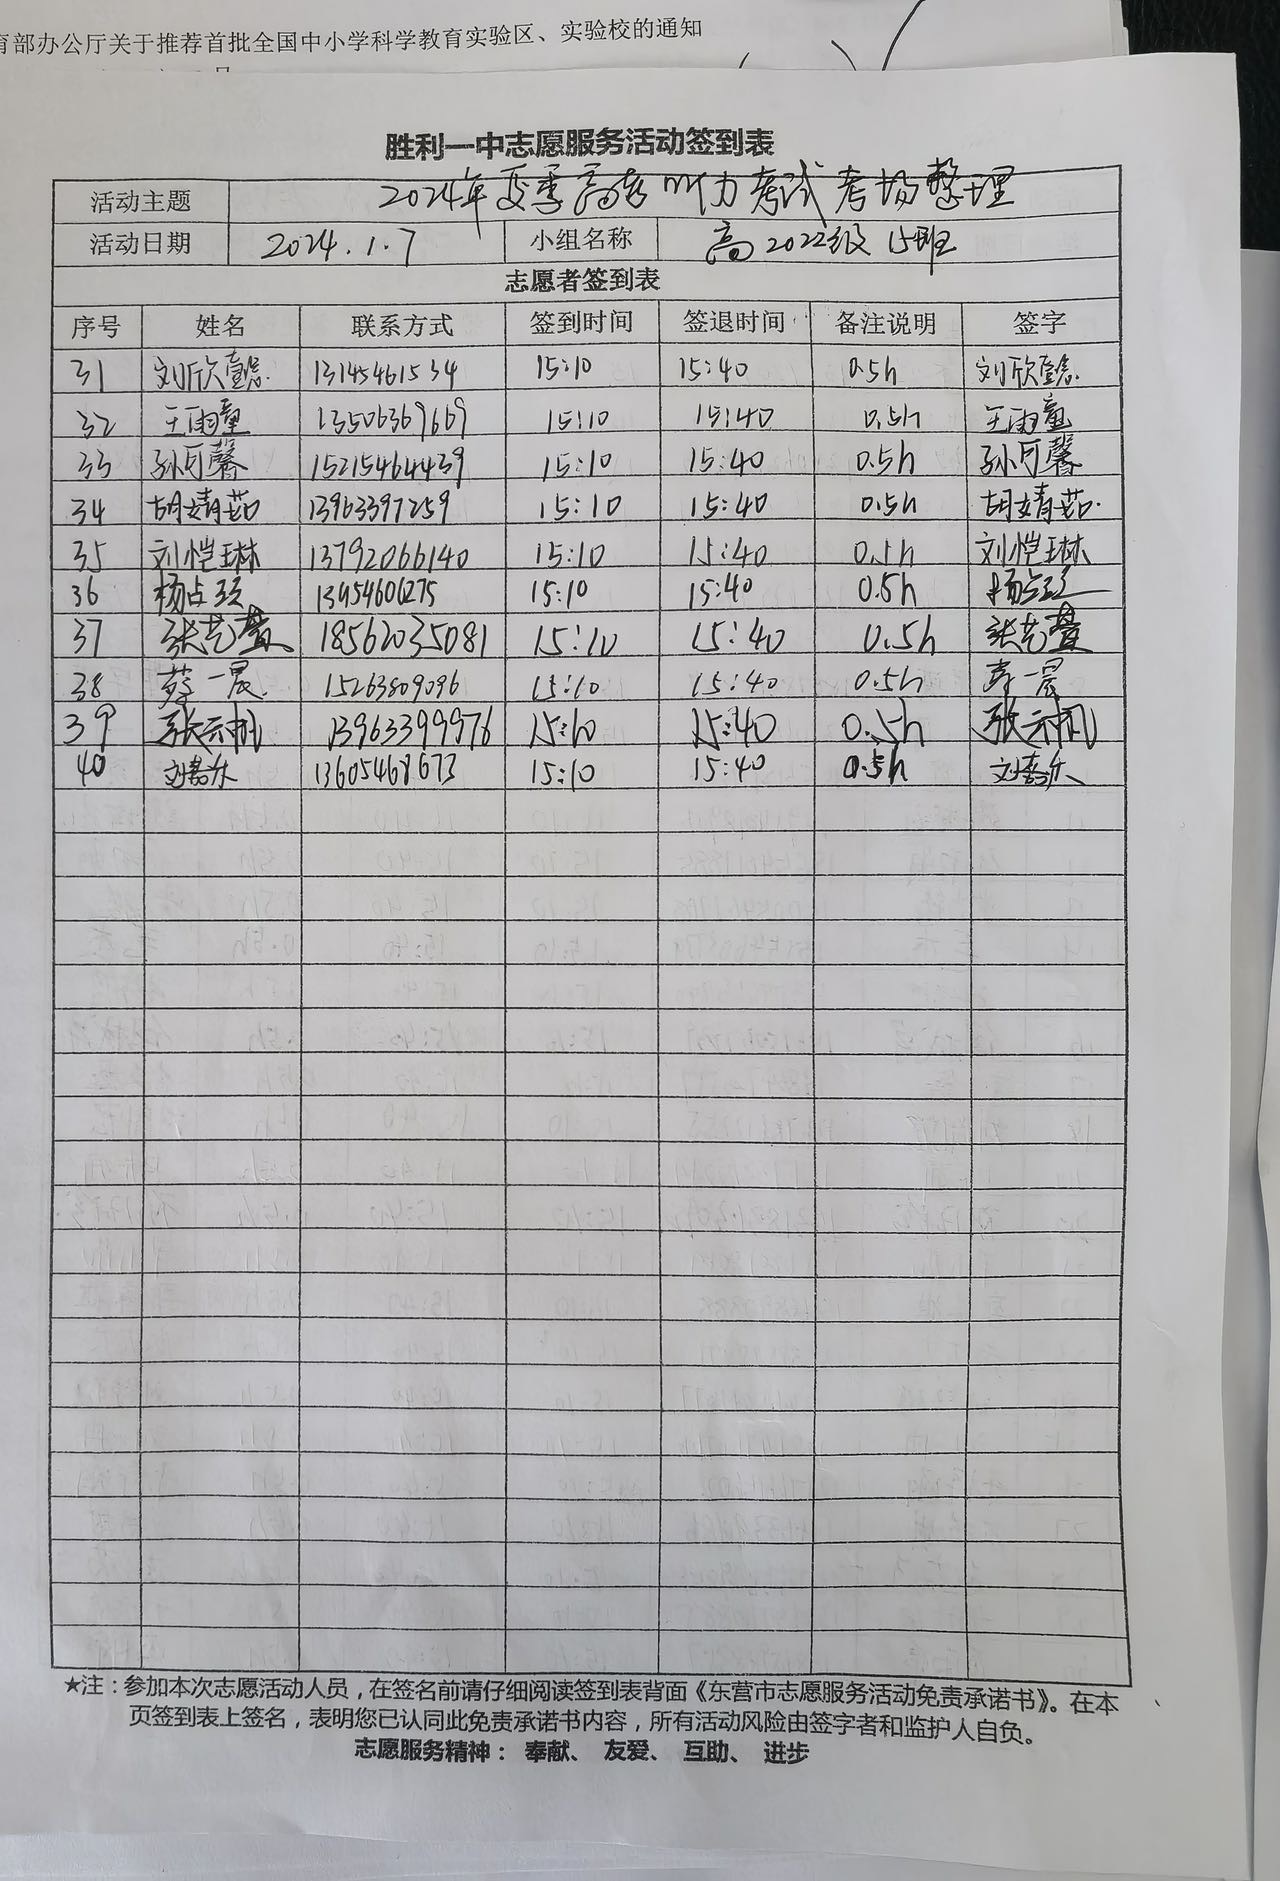 育部办公厅关于推荐首批全国中小学科学教育实验区、实验校的通知
胜利一中志愿服务活动签到表
活动主题 2024年夏季高考听力考试考场整理
活动日期 2024.1.7 小组名称 高2022级15班
志愿者签到表
序号 姓名 联系方式 签到时间 签退时间 备注说明 签字
31 刘欣懿 13145461534 15:10 15:40 0.5h 刘欣懿
32 王雨童 13506369669 15:10 15:40 0.5h 王雨童
33 孙可馨 15215464439 15:10 15:40 0.5h 孙可馨
34 胡婧茹 13963397259 15:10 15:40 0.5h 胡婧茹
35 刘恺琳 13792066140 15:10 15:40 0.5h 刘恺琳
36 杨占 13454606275 15:10 15:40 0.5h 杨占
37 张艺萱 18562035081 15:10 15:40 0.5h 张艺萱
38 一晨 15263809096 15:10 15:40 0.5h 一晨
39 张示 13963399976 15:10 15:40 0.5h 张示
40 刘嘉乐 13605468673 15:10 15:40 0.5h 刘嘉乐
★注：参加本次志愿活动人员，在签名前请仔细阅读签到表背面《东营市志愿服务活动免责承诺书》。在本
页签到表上签名，表明您已认同此免责承诺书内容，所有活动风险由签字者和监护人自负。
志愿服务精神： 奉献、 友爱、 互助、 进步